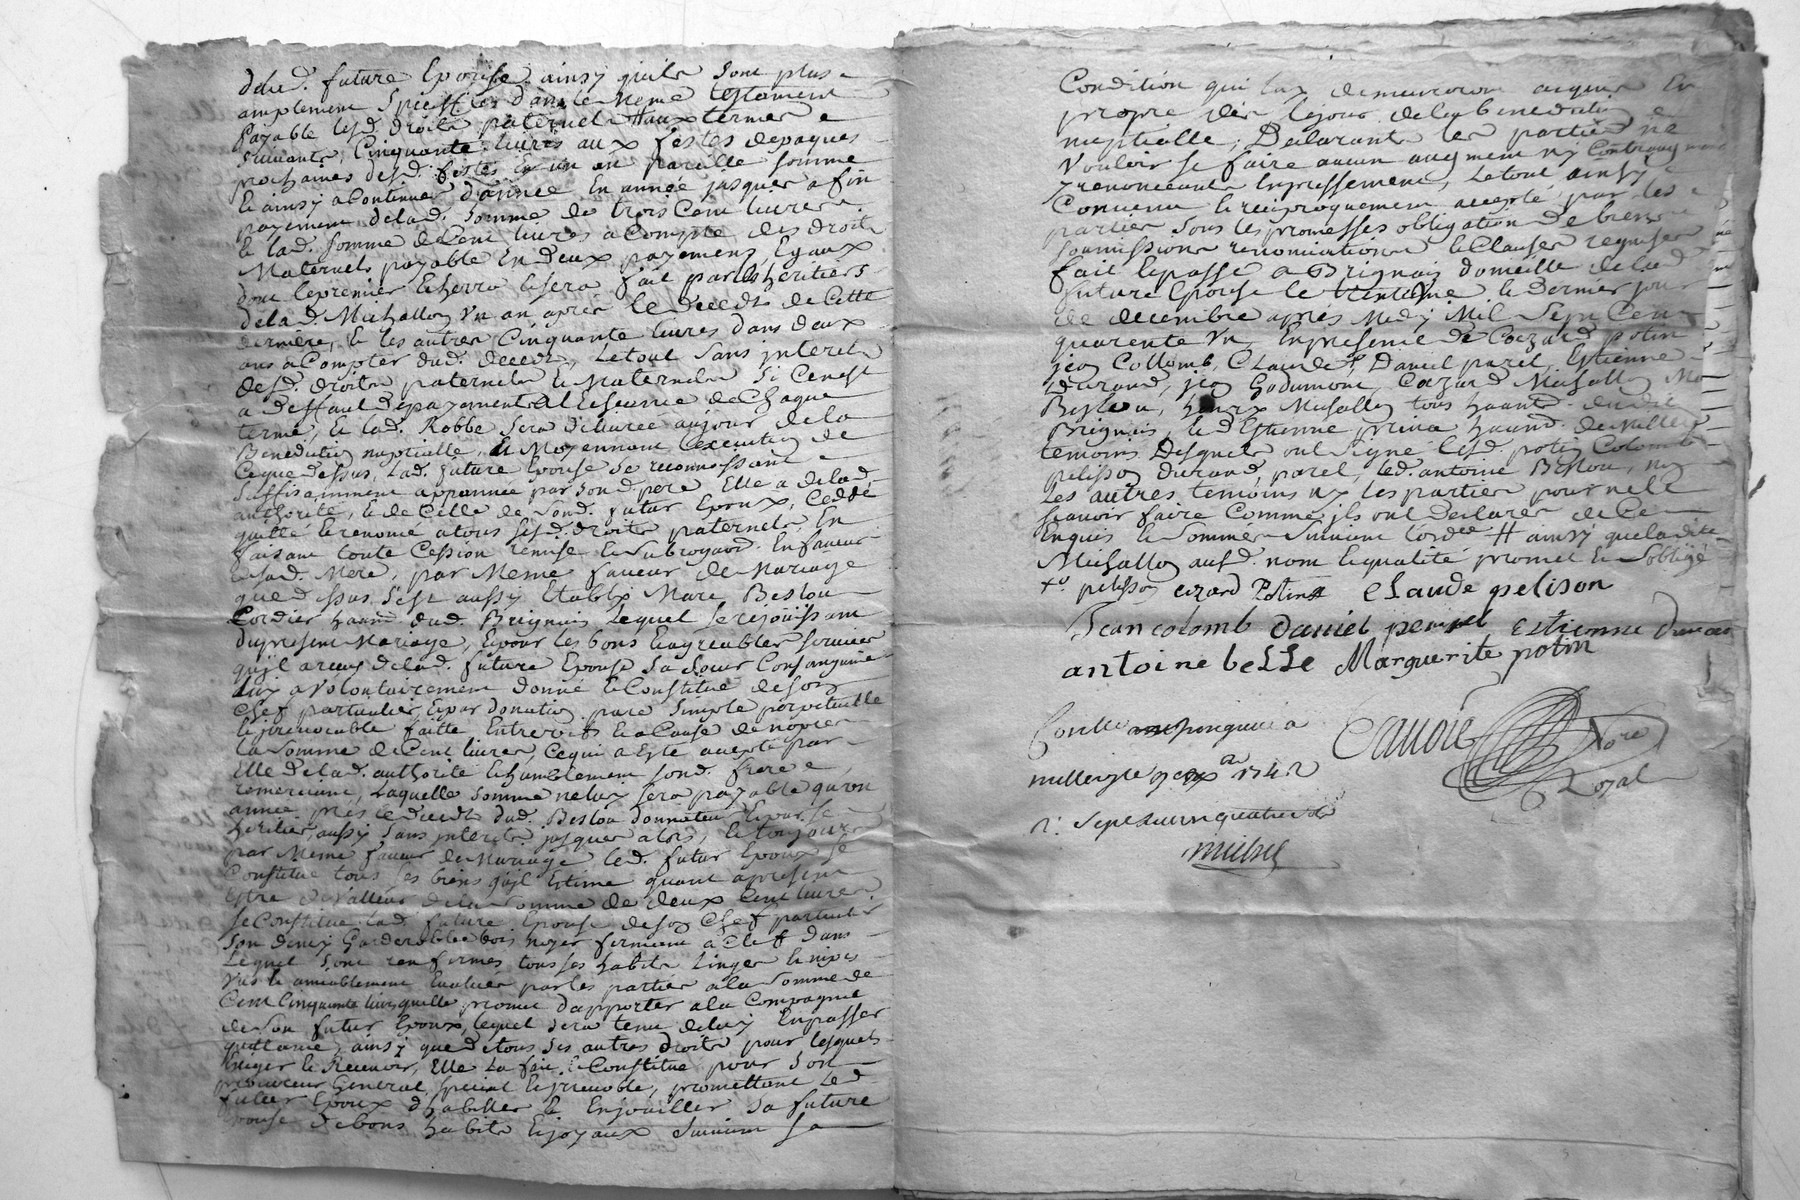 delad. future Epouse ainsy quils sont plus
amplement Spiecffiées dans le meme testament
Payable lesd. droits paternels aux termes
suivants, Cinquante livres aux festes depaques
prochaines desd. festes En un an pareille somme
& ainsy aContinuer d'année En année jusques afin
payement delad. somme de trois Cent livres
& lad. somme deCent livres aCompte des droits
Maternels payable En deux payements Egaux
dont lepremier Echerra &sera fait par les héritiers
delad. Michallon un an après le deced de Cette
dernière, & les autres Cinquante livres dans deux
ans aCompter dud. deced, Letout sans interet
desd. droits paternels & Maternels Si Cenest
a deffaut depayement al Echeance deChaque
terme, & lad. Robbe sera délivrée aujour de la
Benediction nuptialle, & Moyennant Lexecution de
Ceque dessus, Lad. future Epouse se reconnoissant
suffisamment appannée par sond. pere Elle a delad.
authorité, & de Celle de sond. futur Epoux, Ceddé
quitté & renoncé atous sesd. droits paternels En
faisant toute Cession remise & subrogaon. En faveur
desad. Mere, par Meme faveur de Mariage
que dessus s'est aussy Etably Marc Beslou
Cordier habnt. dud. Brignais Lequel se rejouissant
dupresent Mariage, &pour les bons &agreables services
quyl areçus delad. future Epouse sa soeur Consanguine
Luy a volontairement donné &Constitué deson
Chef particulier &par donation pure simple perpetuelle
&irrevocable faitte Entrevifs &aCause denopces
La somme deCent livres, Cequi a Esté accepté par
Elle delad. authorité &humblement sond. frere
remerciant, Laquelle somme neluy sera payable quun
année près le deced dud. Beslou donnateur &par se
heritier aussy sans interets jusques alors, & toujours
par Meme faveur de Mariage led. futur Epoux se
Constitue tous ses biens quyl Estime quant apresent
Estre de valleur dela somme de deux Cent livres
se Constitue lad. future Epouse deson Chef particulier
son demy Garderobbe bois noyer fermant aClef dans
Lequel sont renfermes tous ses habits Linges & nipes
& ameublement Evaluées par les parties ala somme de
Cent Cinquante livres quelle promet d'apporter ala Compagnie
de son futur Epoux, lequel sera tenu deluy Enpasser
quittance, ainsy que de tous ses autres droits pour lesquels
Exiger & Recevoir, Elle La fait &Constitue pour son
procureur General special &irrevocable, promettant led.
futur Epoux d'habiller & Enjoailler sa future
Epouse debons habits &joyaux suivant sa
Condition qui luy demeureront acquis En
propre dès lejour delad. benediction
nuptialle, Declarants les parties ne
Vouloir se faire aucun augment ny Contreaugment
yrenonceants Expressement, Letout ainsy
Convenu & reciproquement accepté par les
parties sous les promesses obligation de biens
soumissions renonciations &Clauses requises
fait &passé a Brignais domicille delad.
future Epouse le trentième & dernier jour
de decembre après Midy Mil Sept Cent
quarente Un, En presence de Cézard potin
jean Collomb, Claude, Daniel parel, Estienne
Durand, jean Godimont, Cézard Michallon,
Beslou, Michallon tous habnts. dudit
Brignais, & d'Estienne habnt. de
temoins Desquels ont signé lesd. potin Colomb
pelisson durand, parel, led. antoine Beslou, ny
Les autres temoins ny les parties pour ne le
scavoir faire Comme ils ont declarer de Ce
Enquis & sommés suivant l'ordce. # ainsy queladite
Michallon aud. nom &qualité promet & soblige
pelisson cezard Potin claude pelison
Jean colomb Daniel Estienne Durand
antoine beLLe Marguerite potin
Conllé a
Cavoré Nore
milleryle 1742
Royal